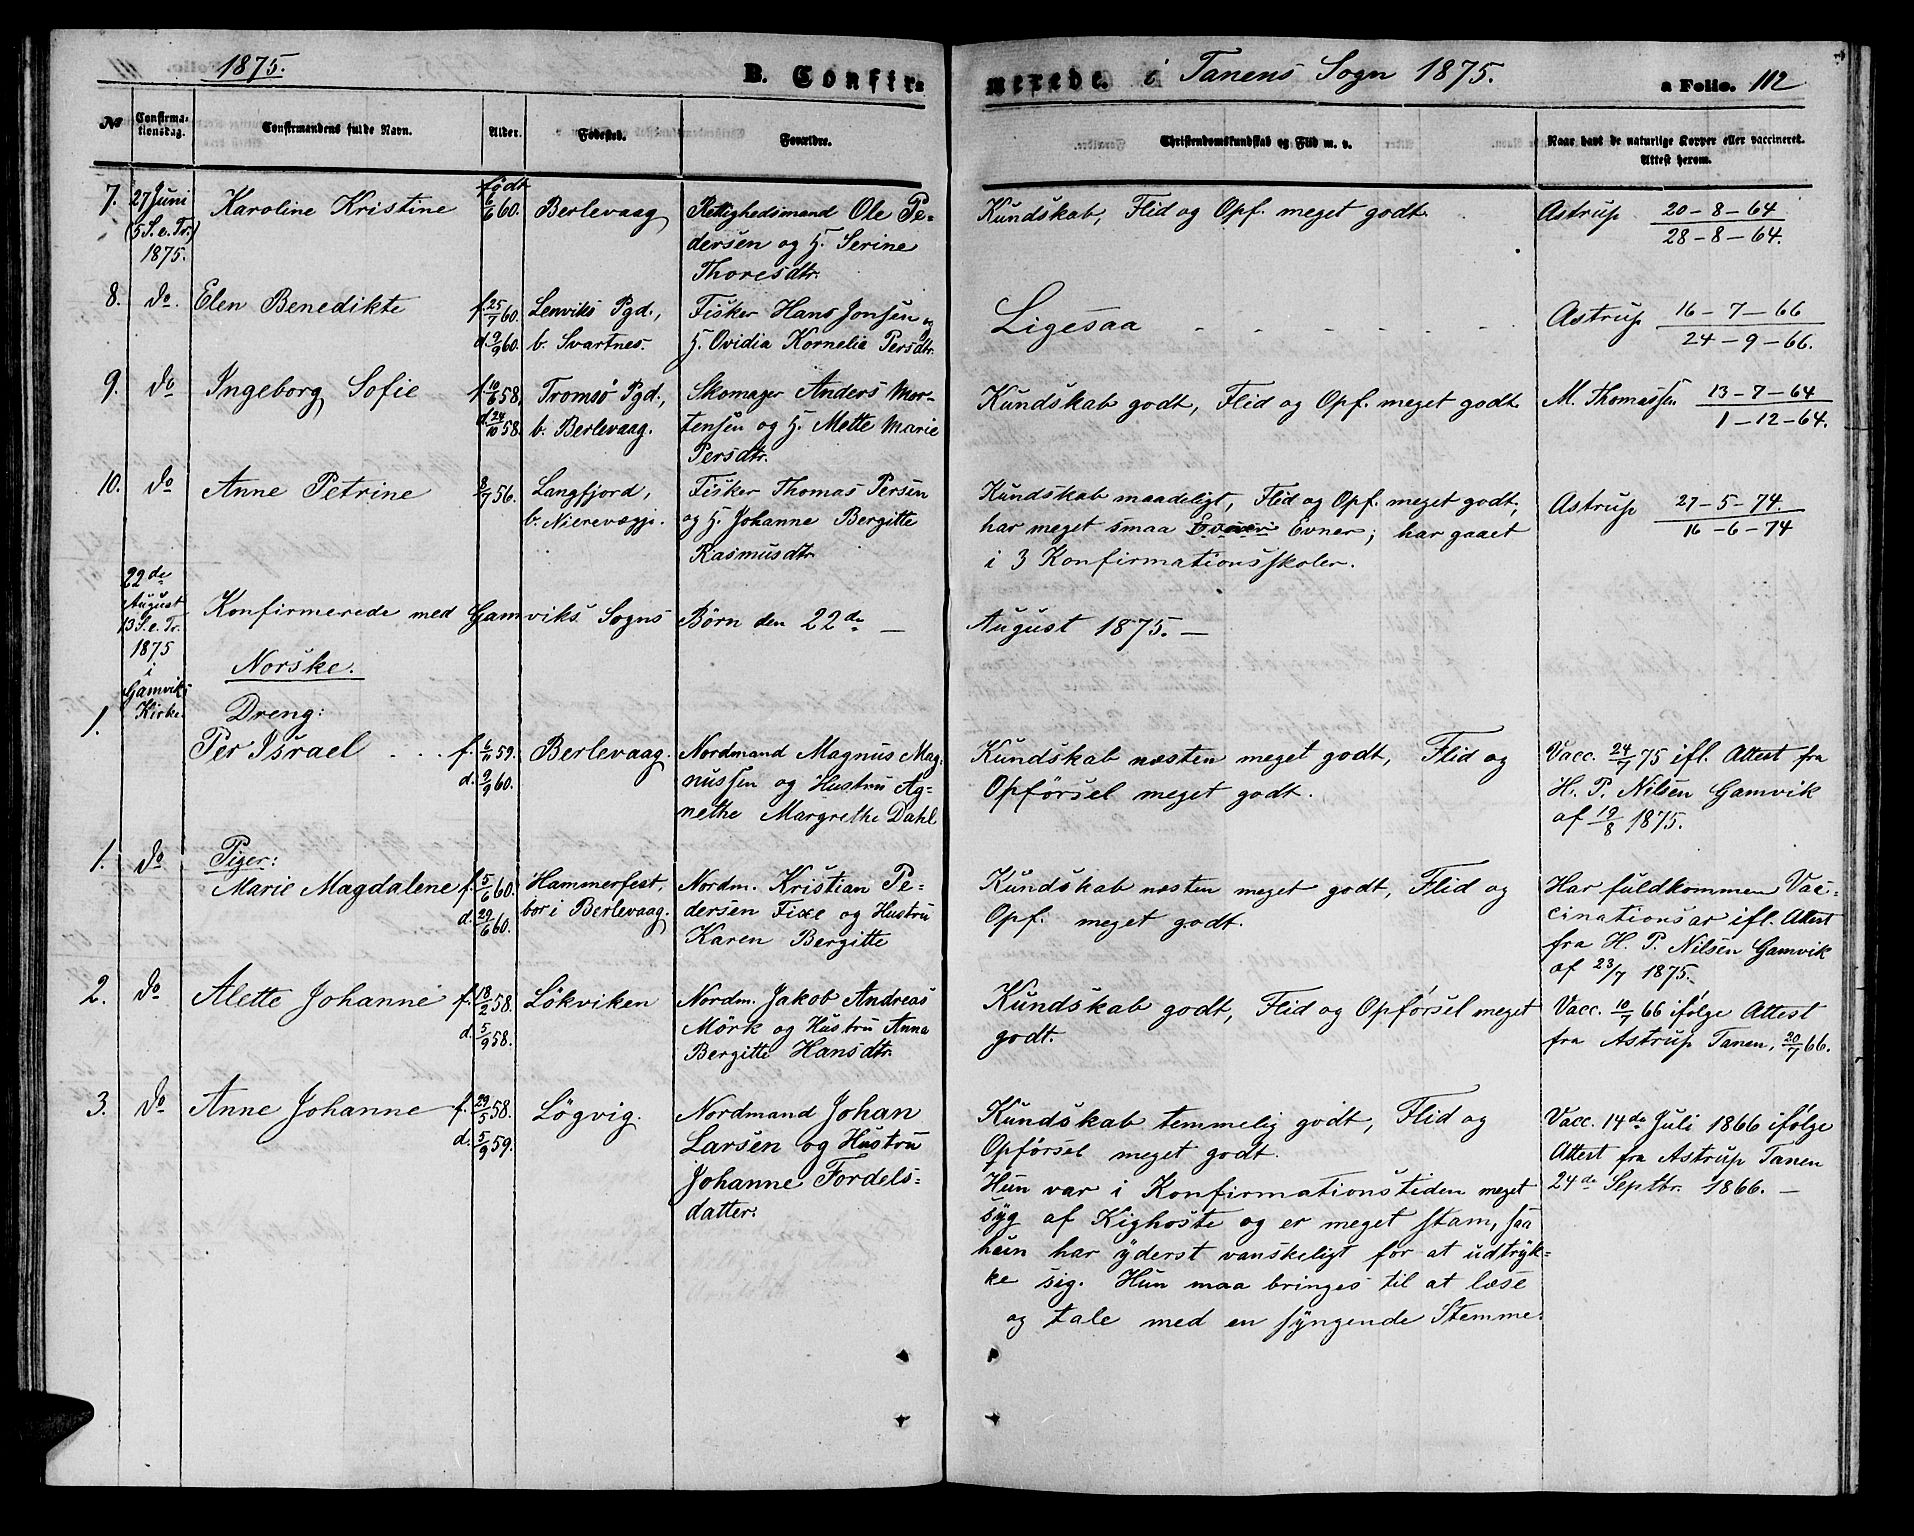 1875.
B. Confir-
merede. i Tanens Sogn 1875.
a Folio. 112
No
Confirma-
tionsdag.
Confirmandens fulde Navn.
Alder.
Fødested.
Forældre.
Christendomskundskab og Flid m. v.
Naar havt de naturlige Kopper eller vaccineret.
Attest herom.
7. 27 Juni Karoline Kristine født 6/6 60. Berlevaag Rettighedsmand Ole Pe- Kundskab, Flid og Opf. meget godt. Astrup 20-8-64
(5 S. e. Tr.) dersen og H. Serine 28-8-64.
1875. Thoresdtr.
8. do. Elen Benedikte f. 25/7 60. Lenviks Pgd., Fisker Hans Jonsen og Ligesaa - - - - - - Astrup 16-7-66
d. 9/9 60. b. Svartnes. H. Ovidia Kornelia Persdtr. 24-9-66.
9. do Ingeborg Sofie f. 10/6 58, Tromsø Pgd., Skomager Anders Mor- Kundskab godt, Flid og Opf. meget godt. M. Thomassen 13-7-64
d. 24/10 58. b. Berlevaag. tensen og H. Mette Marie 1-12-64.
Persdtr.
10. do Anne Petrine 8/7 56. Langfjord, Fisker Thomas Persen Kundskab maadeligt, Flid og Opf. meget godt, Astrup 27-5-74.
b. Nierevægji. og H. Johanne Bergitte har meget smaa Evner; har gaaet 16-6-74
Rasmusdtr. i 3 Konfirmationsskoler.
22de
August Konfirmerede med Gamviks Sogns Børn den 22de — August 1875. —
13 S. e. Tr.
1875
i Norske.
Gamviks
Kirke. Dreng:
1. Per Israel - - - f. 6/11 59. Berlevaag. Nordmand Magnus Mag- Kundskab næsten meget godt, Flid og Vacc. 24/7 75 ifl. Attest fra
d. 9/9 60. nussen og Hustru Ag- Opførsel meget godt. H. P. Nilsen Gamvik
nethe Margrethe Dahl af 19/8 1875.
Piger:
1. do Marie Magdalene f. 5/6 60. Hammerfest, Nordm. Kristian Pe- Kundskab næsten meget godt, Flid og Har fuldkommen Vac-
d. 29/6 60. bor i Berlevaag. dersen Fixe og Hustru Opf. meget godt. cinationsar ifl. Attest
Karen Bergitte fra H. P. Nilsen Gamvik
af 23/7 1875.
2. do Alette Johanne f. 18/2 58. Lökviken Nordm. Jakob Andreas Kundskab godt, Flid og Opførsel meget Vacc. 10/7 66 ifølge Attest
d. 5/9 58. Mörk og Hustru Anna godt. fra Astrup Tanen, 20/7 66.
Bergitte Hansdtr.
3. do Anne Johanne f. 29/5 58. Lögvig. Nordmand Johan Kundskab temmelig godt, Flid og Vacc. 14de Juli 1866 ifølge
d. 5/9 59. Larsen og Hustru Opførsel meget godt. Attest fra Astrup Tanen
Johanne Fordels- Hun var i Konfirmationstiden meget 24de Septbr. 1866. —
datter. syg af Kighoste og er meget stam, saa
hun har yderst vanskeligt for at udtryk-
ke sig. Hun maa bringes til at læse
og tale med en syngende Stemme.